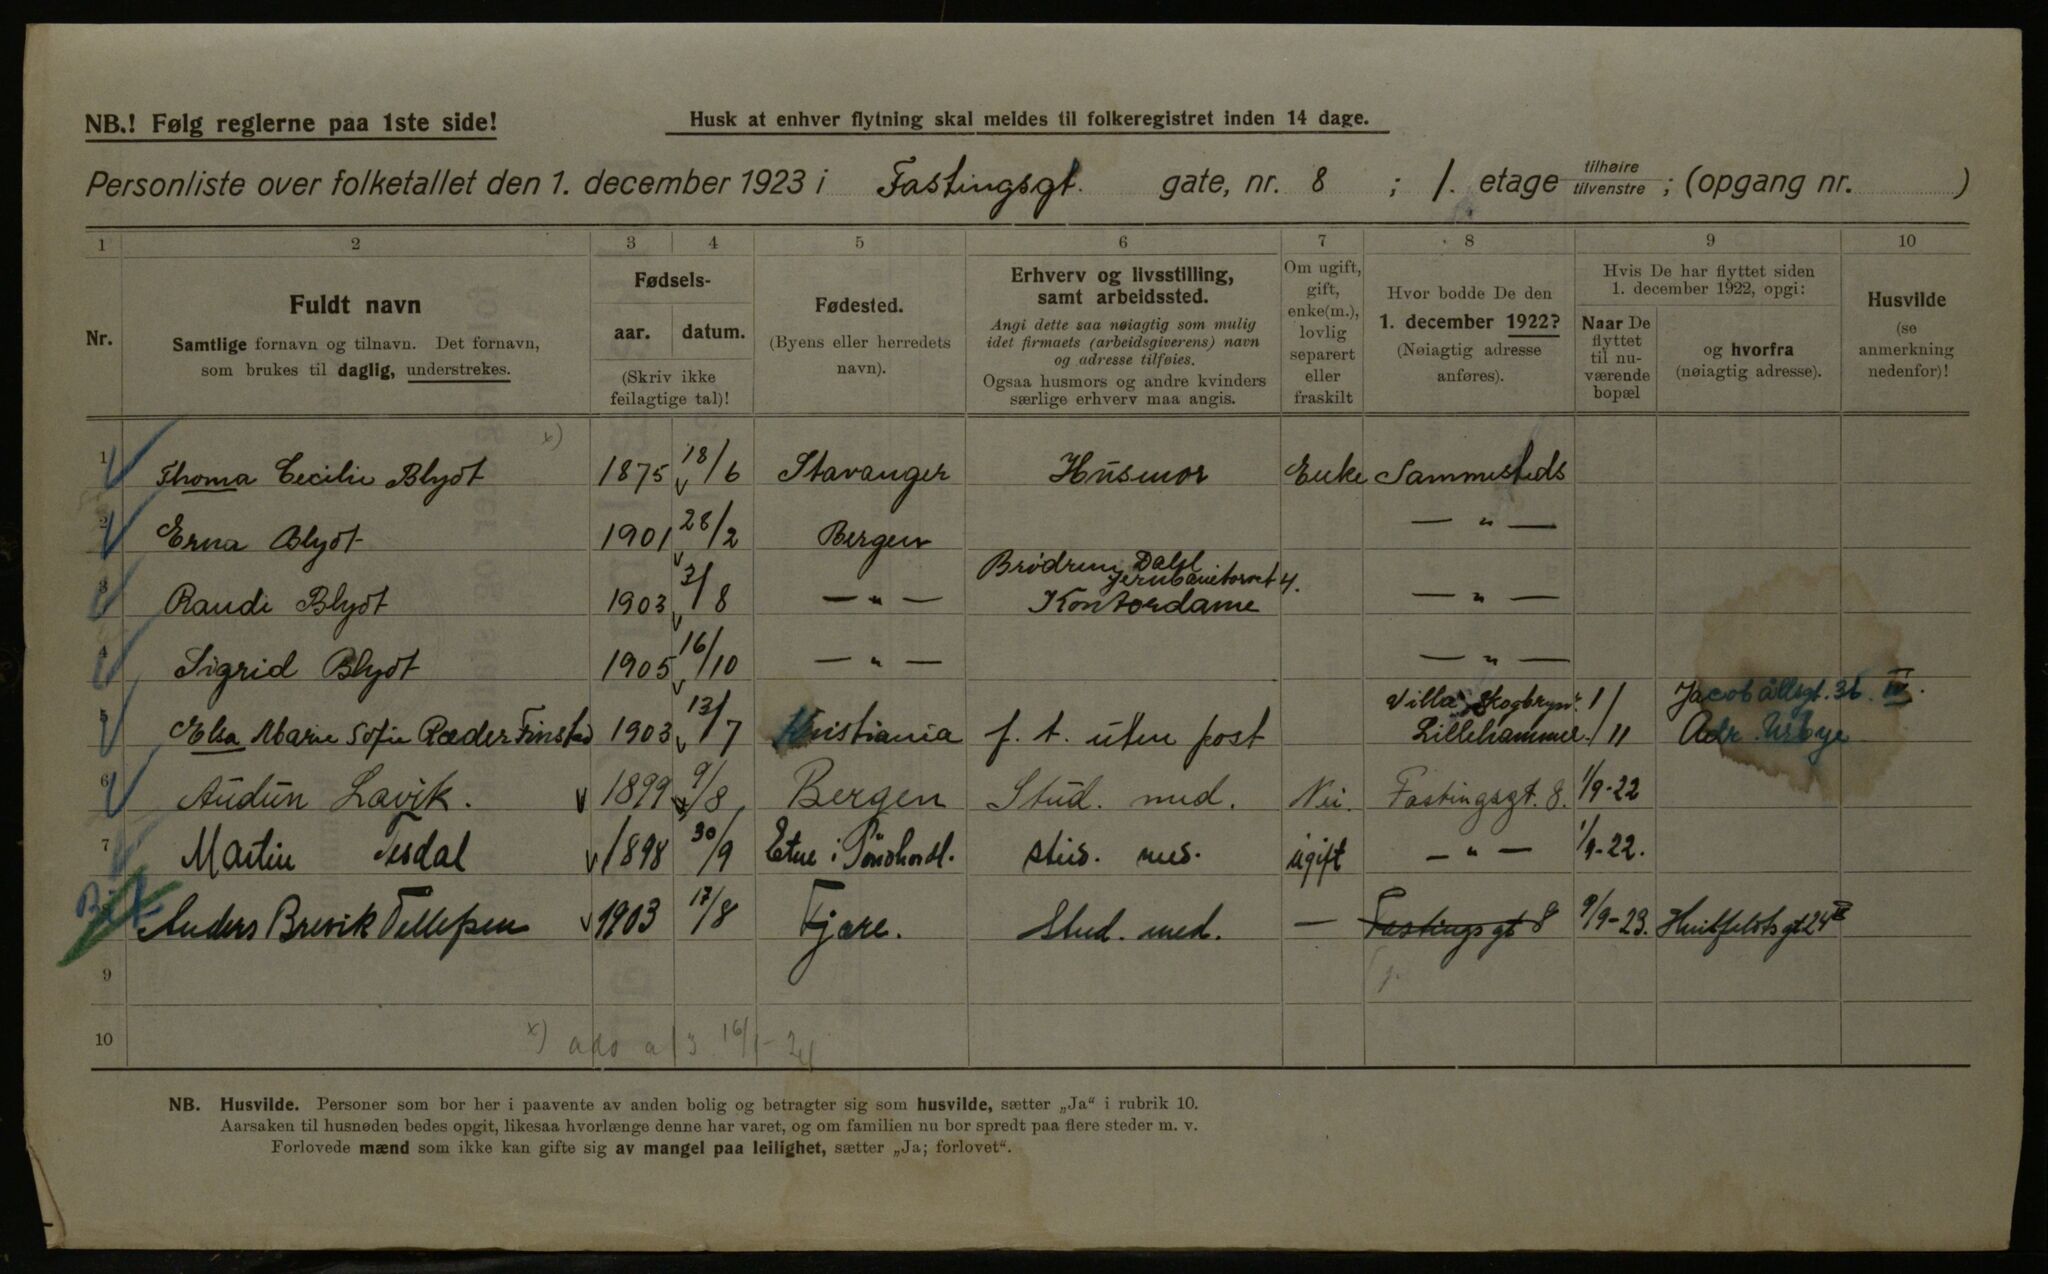 NB.! Følg reglerne paa 1ste side!
Husk at enhver flytning skal meldes til folkeregistret inden 14 dage.
Personliste over folketallet den 1. december 1923 i Fastingsgt. gate, nr. 8 ; 1. etage tilhøire tilvenstre ; (opgang nr. )
1 2 3 4 5 6 7 8 9 10
Nr.
Fuldt navn
Samtlige fornavn og tilnavn. Det fornavn,
som brukes til daglig, understrekes.
Fødsels-
aar. datum.
(Skriv ikke
feilagtige tal)!
Fødested.
(Byens eller herredets
navn).
Erhverv og livsstilling,
samt arbeidssted.
Angi dette saa nøiagtig som mulig
idet firmaets (arbeidsgiverens) navn
og adresse tilføies.
Ogsaa husmors og andre kvinders
særlige erhverv maa angis.
Om ugift,
gift,
enke(m.),
lovlig
separert
eller
fraskilt
Hvor bodde De den
1. december 1922?
(Nøiagtig adresse
anføres).
Hvis De har flyttet siden
1. december 1922, opgi:
Naar De
flyttet
til nu-
værende
bopæl
og hvorfra
(nøiagtig adresse).
Husvilde
(se
anmerkning
nedenfor)!
x)
1 Thoma Cecilie Blydt 1875 18/6 Stavanger Husmor Enke Sammesteds
2 Erna Blydt 1901 28/2 Bergen — " —
Brødrene Dahl
Jernbanetorvet 4.
3 Randi Blydt 1903 3/8 — " — Kontordame — " —
4 Sigrid Blydt 1905 16/10 — " — — " —
Villa Skogbryn. 1/ Jacob Aallsgt. 36 IV.
5 Elsa Marie Sofie Ræder Finstad 1903 13/7 Kristiania f. t. uten post Lillehammer. /11 Adr.
6 Audun Lavik. 1899 9/8 Bergen Stud. med. Nei. Fastingsgt. 8. 1/9-22
7 Martin Tesdal 1898 30/9 Etne i Søndhordl. stud. med. ugift — " — 1/9-22.
8 Anders Brevik Tellefsen 1903 17/8 Fjære. Stud. med. — Fastingsgt 8 9/9-23. Huitfeldtsgt 24 II
9
10
x) ado a/3 16/1-24
NB. Husvilde. Personer som bor her i paavente av anden bolig og betragter sig som husvilde, sætter „Ja“ i rubrik 10.
Aarsaken til husnøden bedes opgit, likesaa hvorlænge denne har varet, og om familien nu bor spredt paa flere steder m. v.
Forlovede mænd som ikke kan gifte sig av mangel paa leilighet, sætter „Ja; forlovet“.